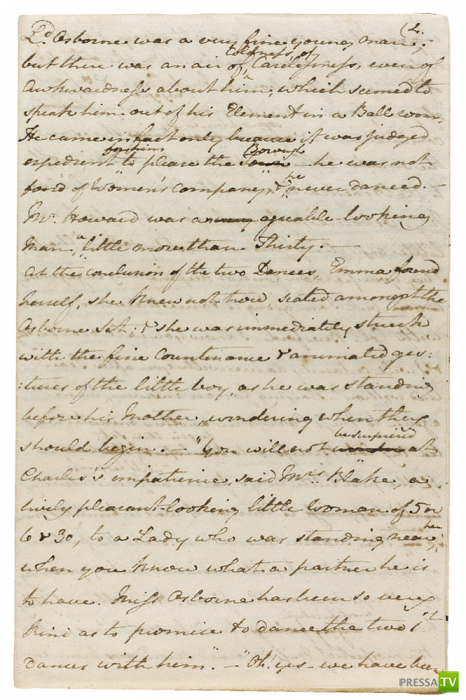 (2.
Ld. Osborne was a very fine young man;
but there was an air of Coldness, of Carelessness, even of
Awkwardness about him, which seemed to
speak him out of his Element in a Ball room.
He came in fact only because it was judged
expedient for him to please the Borough - he was not
fond of Women's company, & he never danced. —
Mr. Howard was an agreable-looking
Man, a little more than Thirty. —
At the conclusion of the two Dances, Emma found
herself, she knew not how, seated amongst the
Osborne Set; & she was immediately struck
with the fine Countenance & animated ges:
:tures of the little boy, as he was standing
before his Mother, wondering when they
should begin. — "You will not be surprised at
Charles's impatience, said Mrs. Blake, a
lively pleasant-looking little Woman of 5 or
6 & 30, to a Lady who was standing near her,
when you know what a partner he is
to have. Miss Osborne has been so very
kind as to promise to dance the two 1st
dances with him". — "Oh! yes - we have been
PRESSA.TV